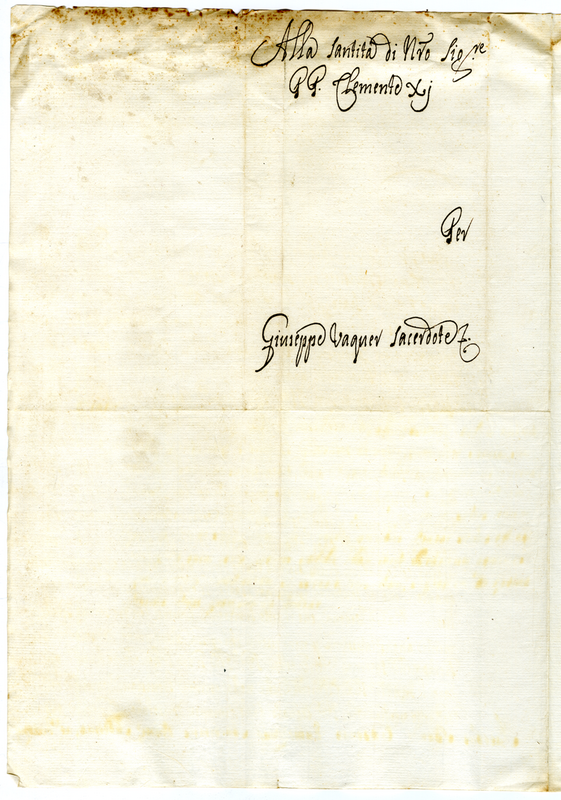 Alla Santità di Nrõ Sig.re
PP. Clemente Xj
Per
Giuseppe Vaquer Sacerdote